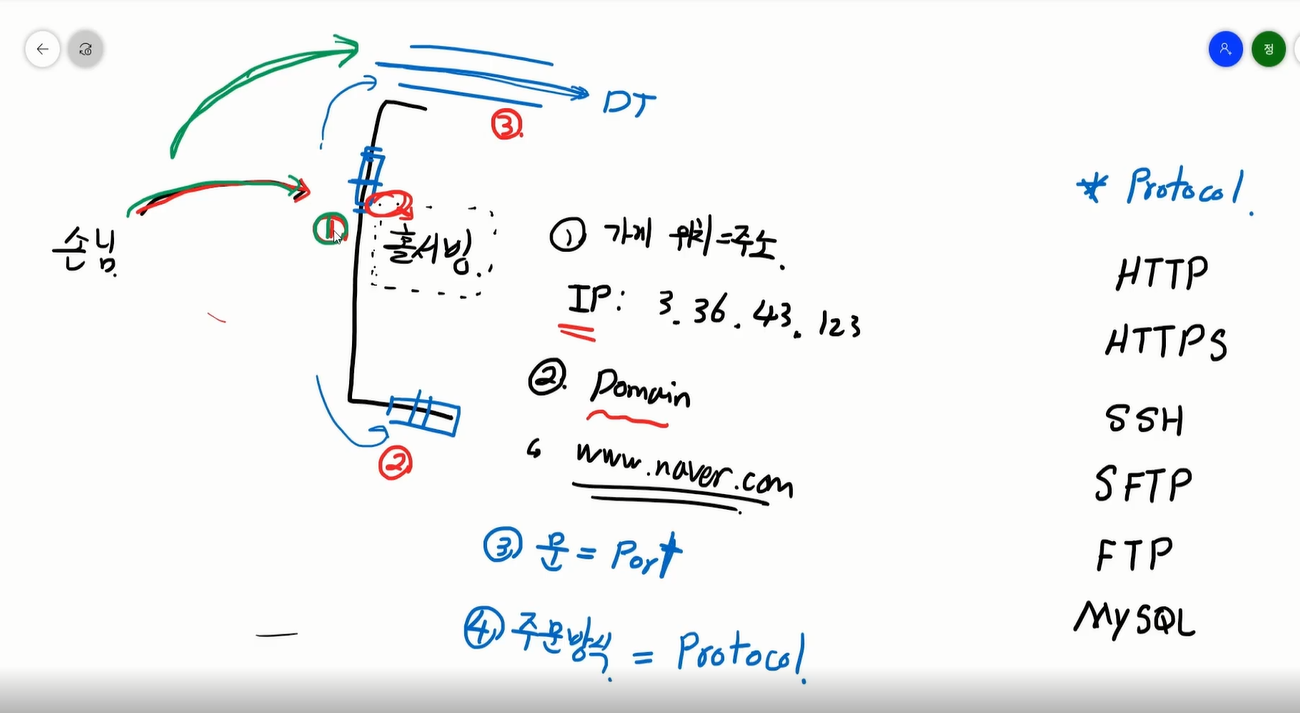 정
DT
③
손님.
①
홀서빙.
②
① 가게 위치=주소.
IP: 3.36.43.123
②. Domain
www.naver.com
③ 문 = Port
④ 주문방식. = Protocol.
* Protocol.
HTTP
HTTPS
SSH
SFTP
FTP
MySQL